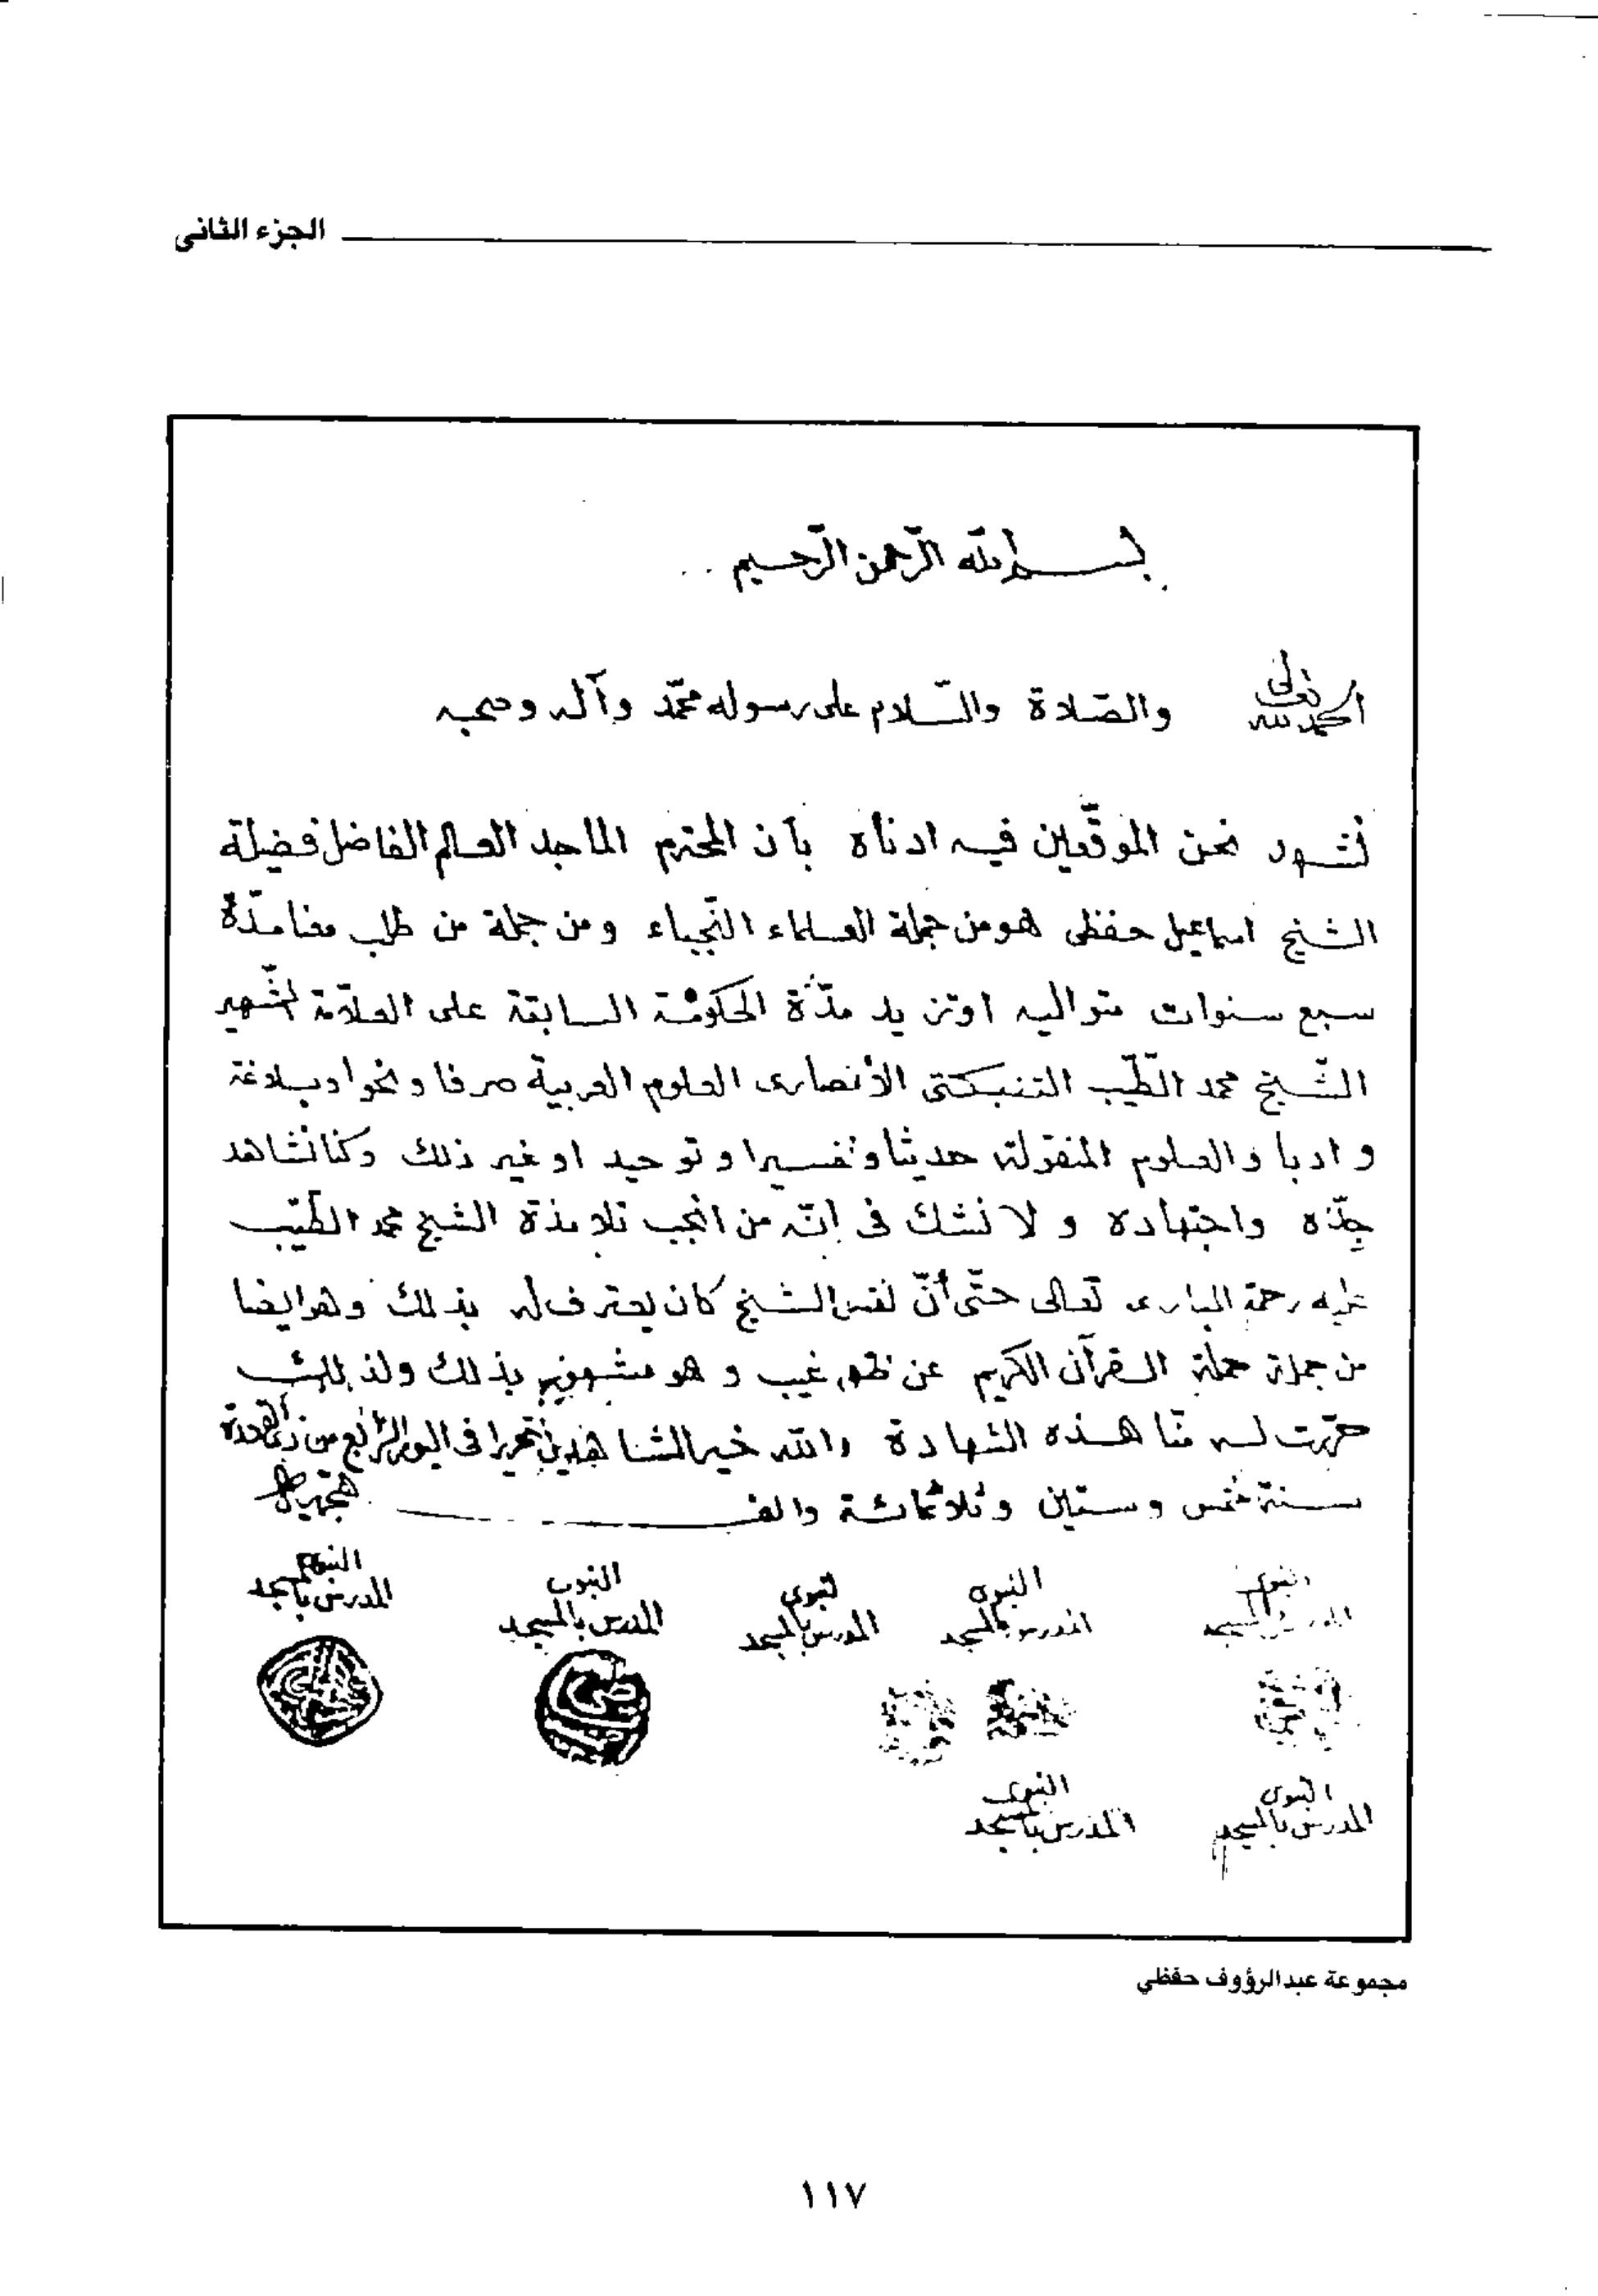 الجزء الثاني
بسم الله الرحمن الرحيم ..
الحمد لله تعالى والصّلاة والسّلام على رسوله محمّد وآله وصحبه
نشهد نحن الموقّعين فيه ادناه بأن المحترم الماجد العالم الفاضل فضيلة
الشيخ اسماعيل حفظى هو من جملة العلماء النّجباء ومن جملة من طلب معنا مدّة
سبع سنوات متواليه او تزيد مدّة الحكومة السابقة على العلاّمة الشّهير
الشّيخ محمد الطّيّب التنبكتى الأنصارى العلوم العربية صرفا ونحوا وبلاغة
وادبا والعلوم المنقولة حديثا وتفسيرا وتوحيد او غير ذلك وكنا نشاهد
جِدّه واجتهاده ولا نشك فى انّه من انجب تلامذة الشيخ محمد الطيّب
عليه رحمة البارى تعالى حتّى أنّ نفس الشيخ كان يعترف له بذلك وهو ايضا
من جملة حملة القرآن الكريم عن ظهر غيب وهو مشهور بذلك ولذلك
حرّرت له منّا هذه الشهادة والله خير الشاهدين تحريرا فى اليوم الرّابع من ذى القعدة
سنة خمس وستين وثلاثمائة والف هجرية
المدرس بالمسجد النبوى المدرس بالمسجد النبوى المدرس بالمسجد النبوى المدرس بالمسجد النبوى المدرس بالمسجد النبوى
المدرس بالمسجد النبوى المدرس بالمسجد النبوى
مجموعة عبدالرؤوف حفظي
١١٧